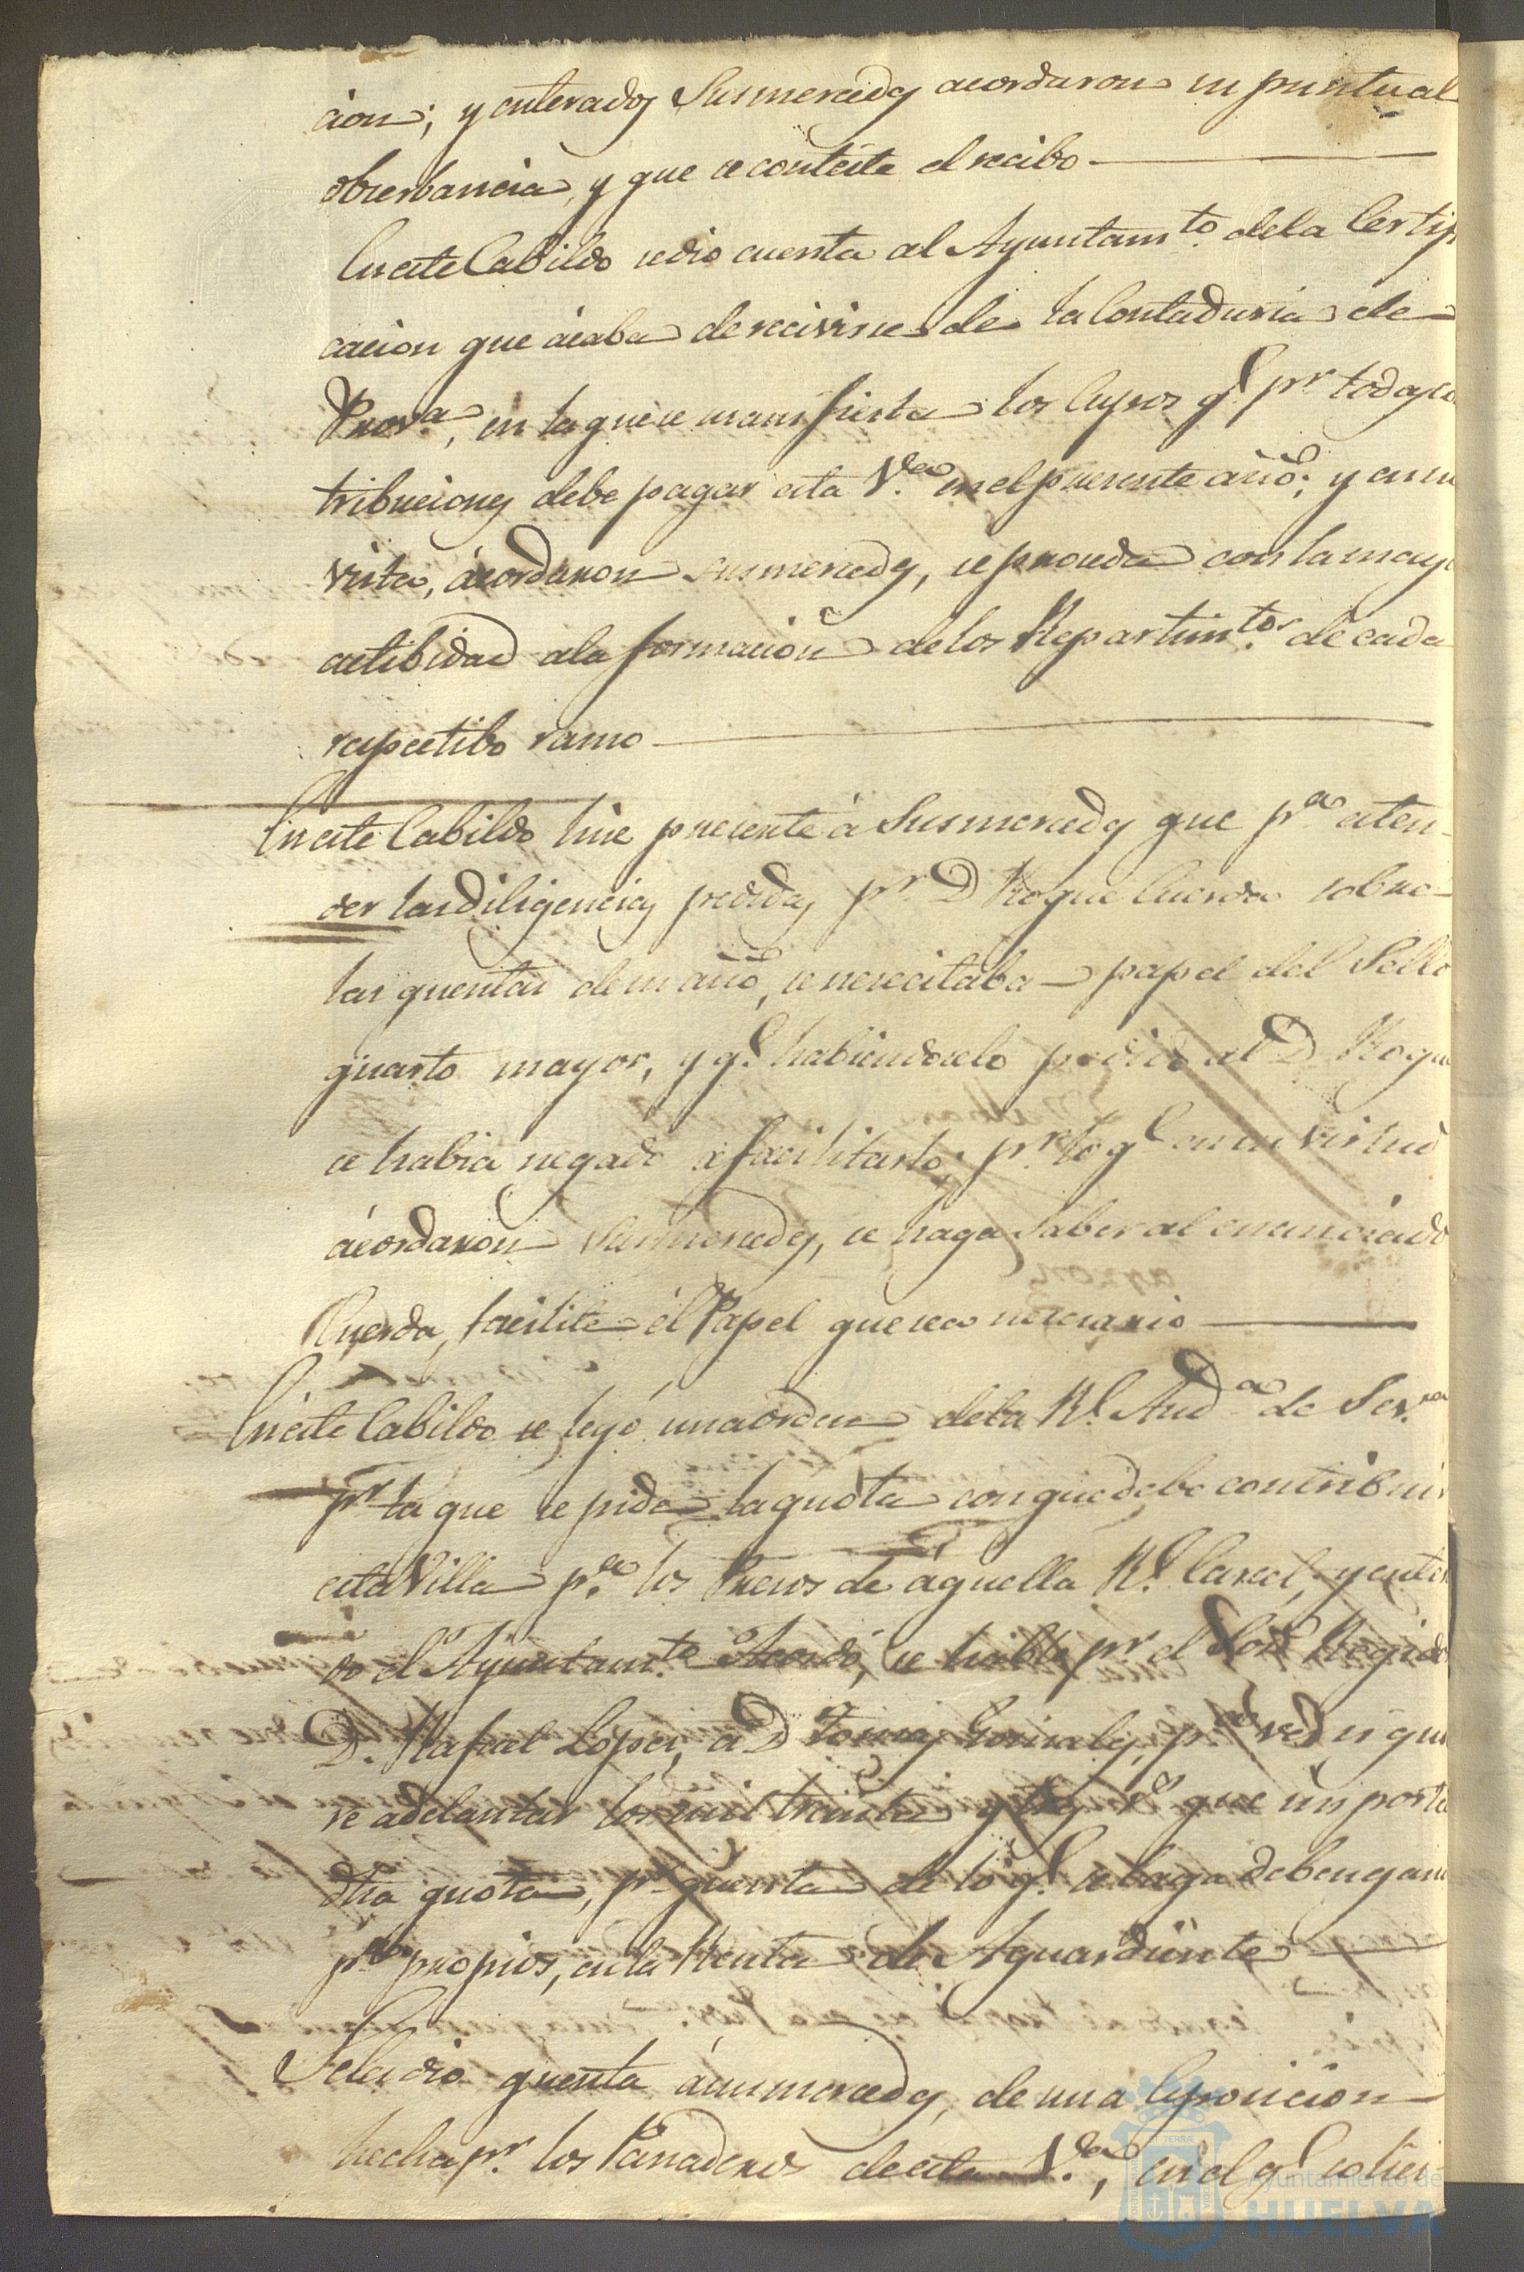 cion; y enterados Susmercedes acordaron su puntual
obserbancia, y que se conteste el recibo
En este Cabildo se dio cuenta al Ayuntamto. dela Certifi
cacion que ácaba de recivirse de la Contaduria de
Prova, en la que se manifiesta los Cupos qe. pr. todas co
tribuciones debe pagar esta Va. en el presente año; y en su
vista, ácordaron susmercedes, se proceda con la mayo
actibidad ala formacion de los Repartimtos. de cada
respectibo ramo
En este Cabildo hice presente á Susmercedes que pa. aten-
der las diligencias pedidas pr. D Roque Cuerda sobre
las quentas de su año, se nesecitaba papel del Sello
quarto mayor, y qe. habiendoselo pedido al D Roque
se habia negado a facilitarlo; pr. lo qe. en su virtud
ácordaron Susmercedes, se haga saber al enunciado
Cuerda, facilite él Papel que sea necesario
En este Cabildo se leyó una orden dela Rl. Auda. de Seva.
pr. la que se pide la quota con que debe contribuir
esta Villa pa. los Presos de aquella Rl. Carcel, y entera
do el Ayuntamto. Acordó, se hable pr. el Sor. Regidor
D. Rafael Lopez, a D Tomas Gonzales, pa. ver si quie
re adelantar los mil treinta y tres rs. que importa
dha quota, pr. quenta de lo qe. se haga debengan
pa. propios, en la Renta de Aguardiente
Se le dio quenta á susmercedes, de una Esposicion
hecha pr. los Panaderos de esta Va., en el qe. solici-
Ayuntamiento de
HUELVA